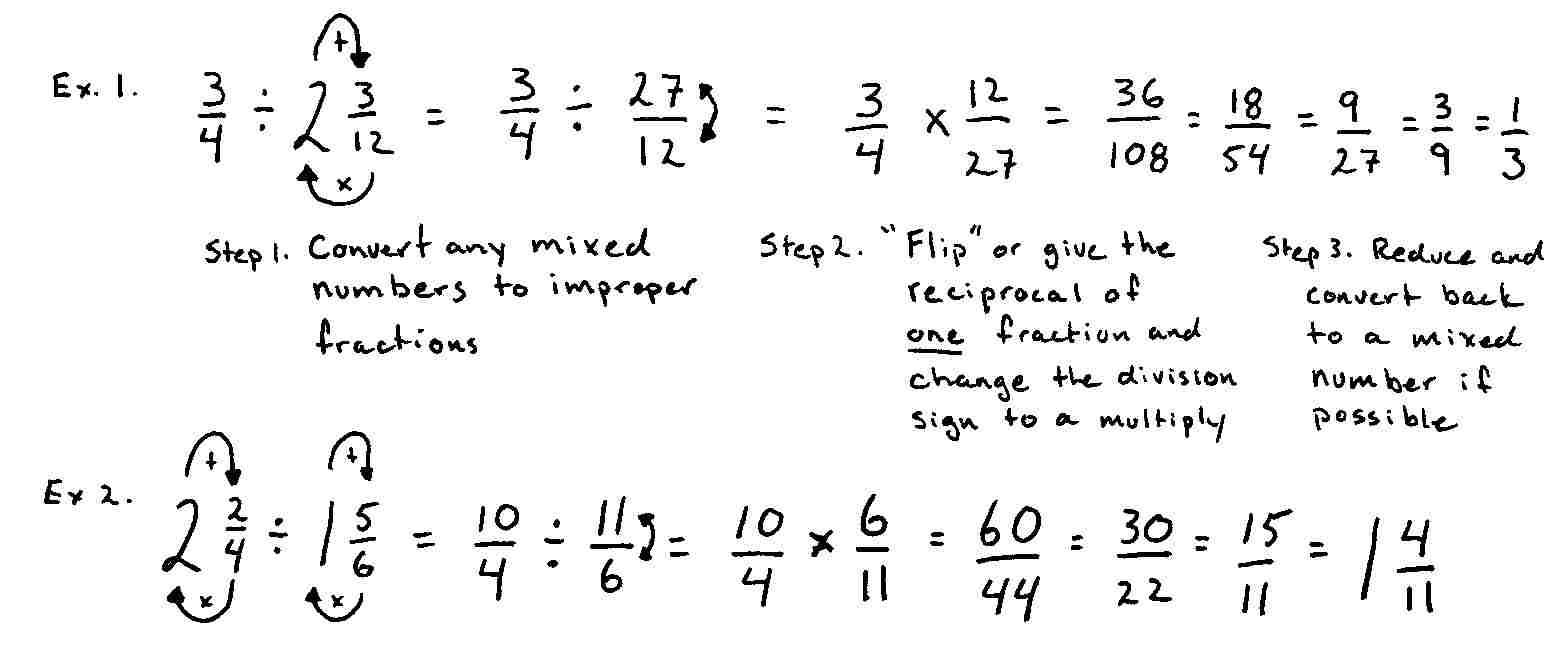 Ex. 1. 3/4 ÷ 2 3/12 = 3/4 ÷ 27/12 = 3/4 × 12/27 = 36/108 = 18/54 = 9/27 = 3/9 = 1/3
+
×
Step 1. Convert any mixed
numbers to improper
fractions
Step 2. "Flip" or give the
reciprocal of
one fraction and
change the division
sign to a multiply
Step 3. Reduce and
convert back
to a mixed
number if
possible
Ex 2. 2 2/4 ÷ 1 5/6 = 10/4 ÷ 11/6 = 10/4 × 6/11 = 60/44 = 30/22 = 15/11 = 1 4/11
+ +
× ×